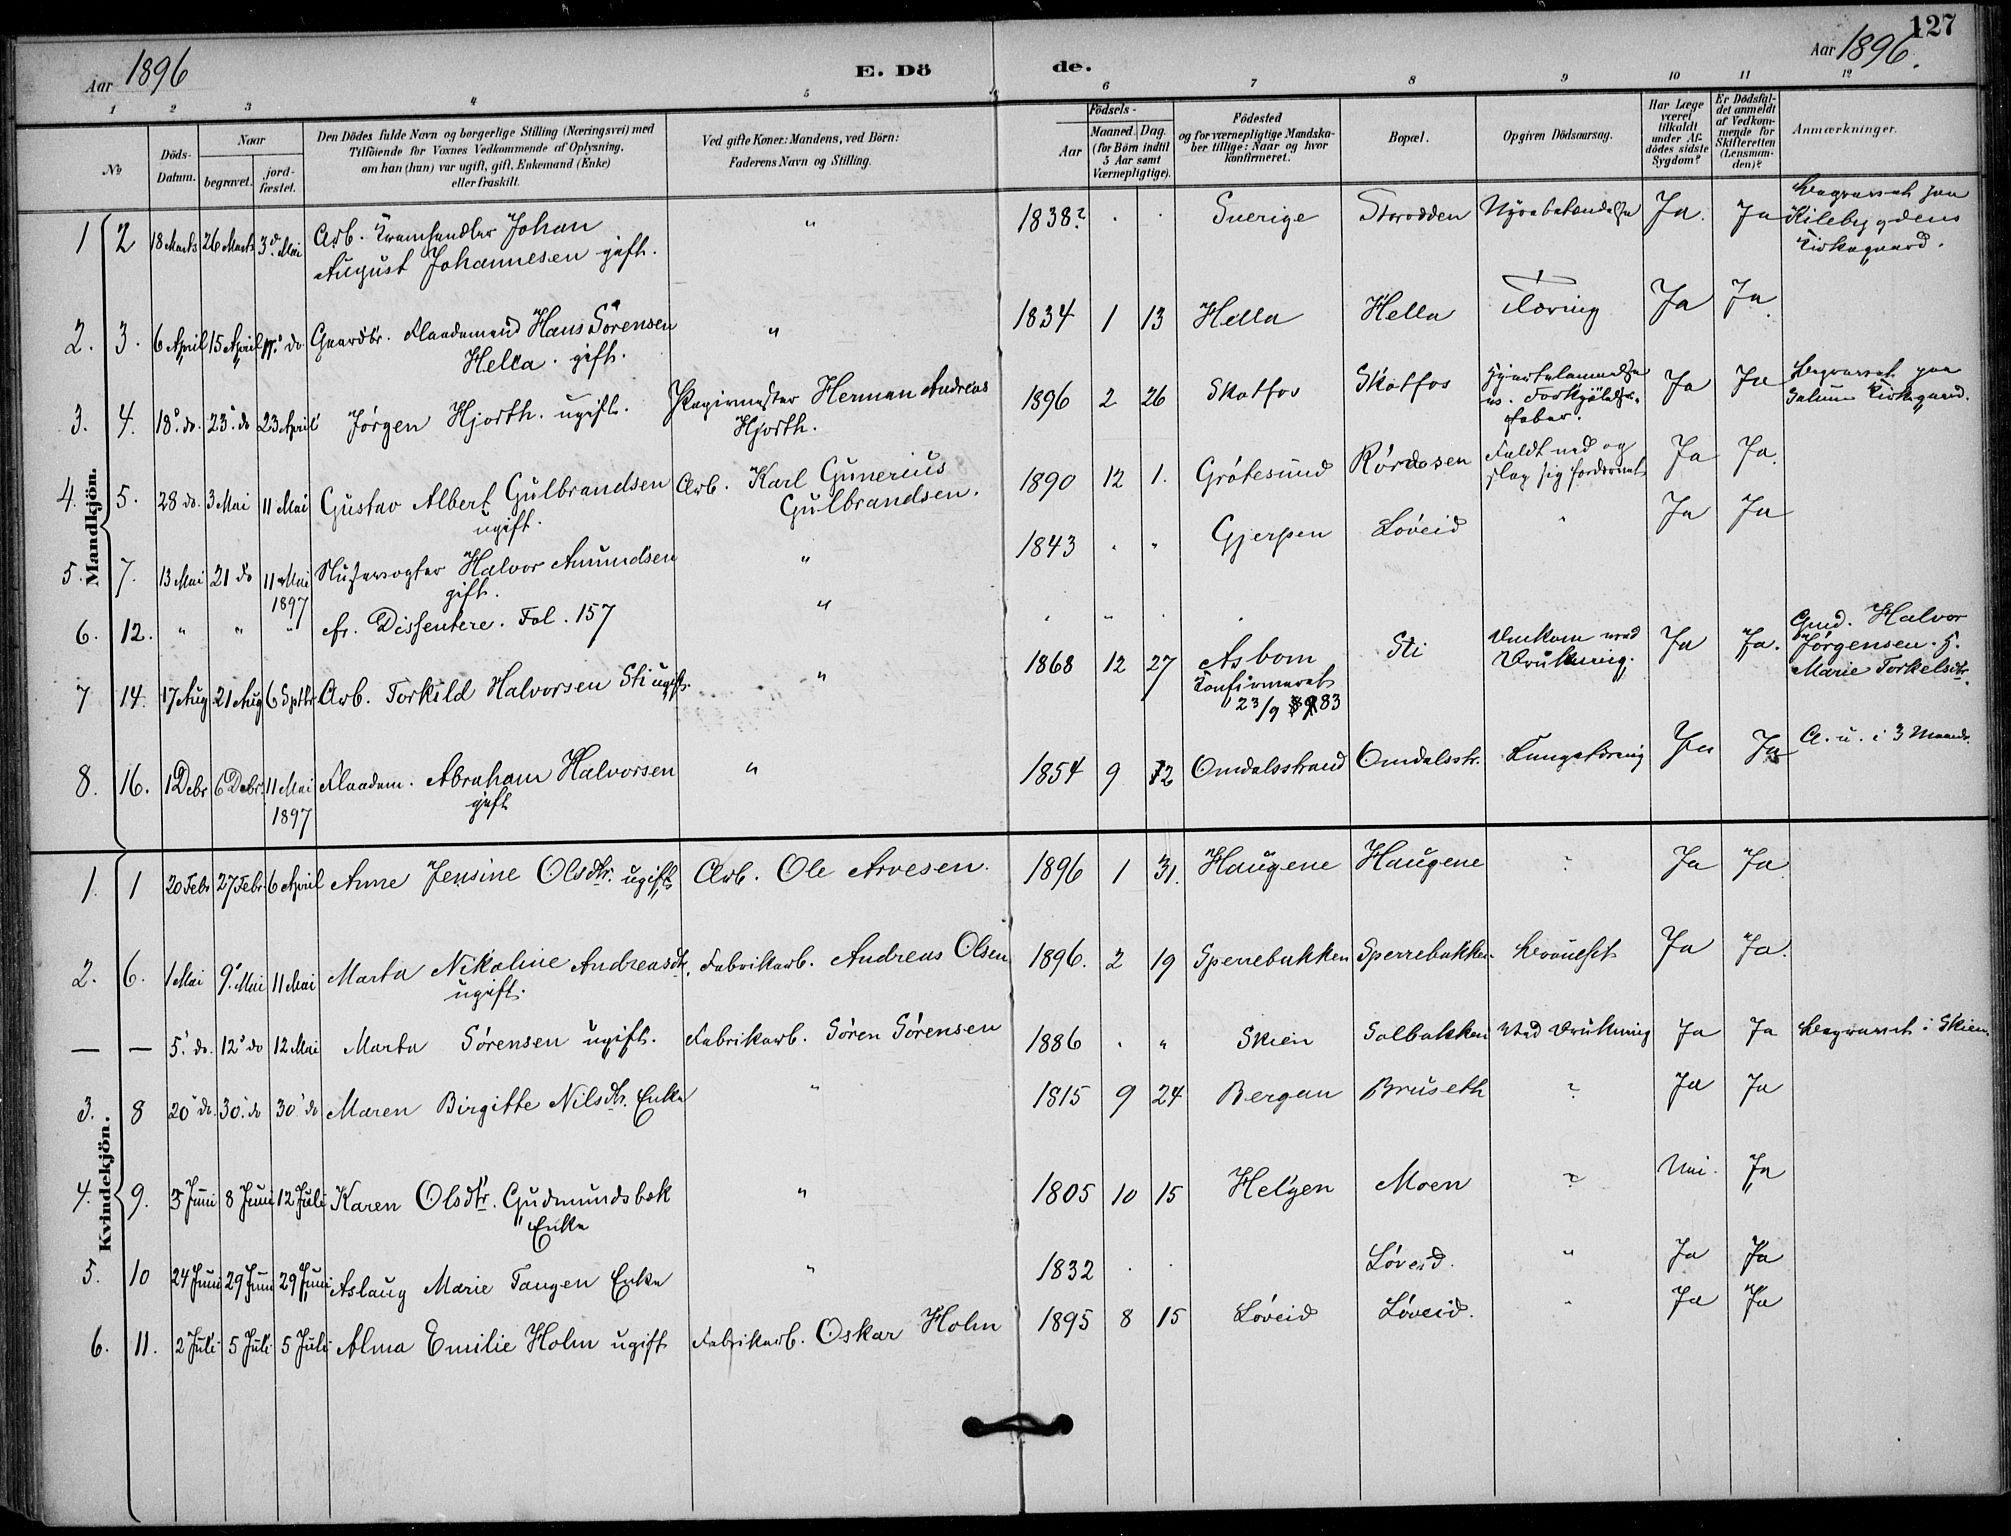 127
Aar 1896
E. Dö
de.
Aar 1896.
1 2 3 4 5 6 7 8 9 10 11 12
No
Döds-Datum.
Naar
begravet.
jord-fæstet.
Den Dödes fulde Navn og borgerlige Stilling (Næringsvei) med
Tilföiende for Voxnes Vedkommende af Oplysning,
om han (hun) var ugift, gift, Enkemand (Enke)
eller fraskilt.
Ved gifte Koner: Mandens, ved Börn:
Faderens Navn og Stilling.
Födsels-
Aar
Maaned. Dag.
(for Børn indtil
5 Aar samt
Værnepligtige).
Födested
og for værnepligtige Mandska-
ber tillige: Naar og hvor
konfirmeret.
Bopæl.
Opgiven Dödsaarsag.
Har Læge
været
tilkaldt
under Af-
dödes sidste
Sygdom?
Er Dödsfal-
det anmeldt
af Vedkom-
mende for
Skifteretten
(Lensman-
den)?
Anmærkninger.
Mandkjön.
1 2 18 Marts 26 Marts 3d. Mai Arb. Kramhandler Johan
August Johannesen gift.
" 1838? . . Sverige Storodden Nyrebetændelse Ja. Ja begravet paa
Kilebygdens
Kirkegaard.
2. 3. 6 April 15 April 11. do. Gaardbr. Flaademand Hans Sørensen
Hella. gift.
" 1834 1 13 Hella Hella Tæring Ja Ja
3. 4. 18. do. 23. do 23 April Jørgen Hjorth. ugift. Papirmester Herman Andreas
Hjorth.
1896 2 26 Skotfos Skotfos Hjertelammelse
Forkjølelses-
feber.
Ja Ja begravet paa
Solum Kirkegaard.
4. 5. 28 do. 3 Mai 11 Mai Gustav Albert Gulbrandsen
ugift.
Arb. Karl Gunerius
Gulbrandsen.
1890 12 1. Grótesund Rórdosen Faldt ned og
slog sig fordærvet
Ja Ja.
5. 7. 13 Mai 21 do 11 Mai
1897
Slusevogter Halvor Amundsen
gift.
" 1843 . " Gjerpen Løveid " Ja Ja
6. 12. " " " cfr. Dissentere. Fol. 157 "
7 14. 17 Aug 21 Aug 6 Sptbr Arb. Torkild Halvorsen Sti ugift. " 1868 12 27 Asbom
Konfirmeret
23/9 83
Sti Omkom ved
Drukning.
Ja Ja. Gmd. Halvor
Jørgensen. H.
Marie Torkelsdtr.
8. 16. 1 Debr 6 Debr. 11 Mai
1897
Flaadem. Abraham Halvorsen
gift
" 1854 9 12 Omdalsstrand Omdalsstr. Lungetæring Ja Ja A. u. i 3 Maand.
Kvindekjön.
1. 1 20 Febr 27 Febr 6 April Anne Jensine Olsdtr. ugift Arb. Ole Arvesen. 1896 1 31. Haugene Haugene ? Ja Ja.
2. 6. 1 Mai 9. Mai 11 Mai Marta Nikoline Andreasdtr.
ugift.
Fabrikarb. Andreas Olsen 1896. 2 19 Sperrebakken Sperrebakken. Ja Ja.
— — 5. do. 12. do 12 Mai Marta Sørensen ugift. Fabrikarb. Søren Sørensen 1886 . " Skien Solbakken Ved Drukning Ja Ja begravet i Skien.
3. 8 20. do. 30. do 30. do Maren Birgitte Nilsdtr. Enke " 1815 9 24 Bergan Bruseth ? Ja Ja
4. 9. 3 Juni 8 Juni 12 Juli Karen Olsdtr. Gudmundsbæk
Enke
" 1805 10 15 Helgen Moen ? Nei. Ja
5. 10 24 Juni 29 Juni 29 Juni Aslaug Marie Tangen Enke " 1832 . . Løveid. " Ja Ja
6. 11. 2 Juli 5 Juli 5 Juli Alma Emilie Holm ugift Fabrikarb. Oskar Holm 1895 8 15 Løveid Løveid. " Ja Ja